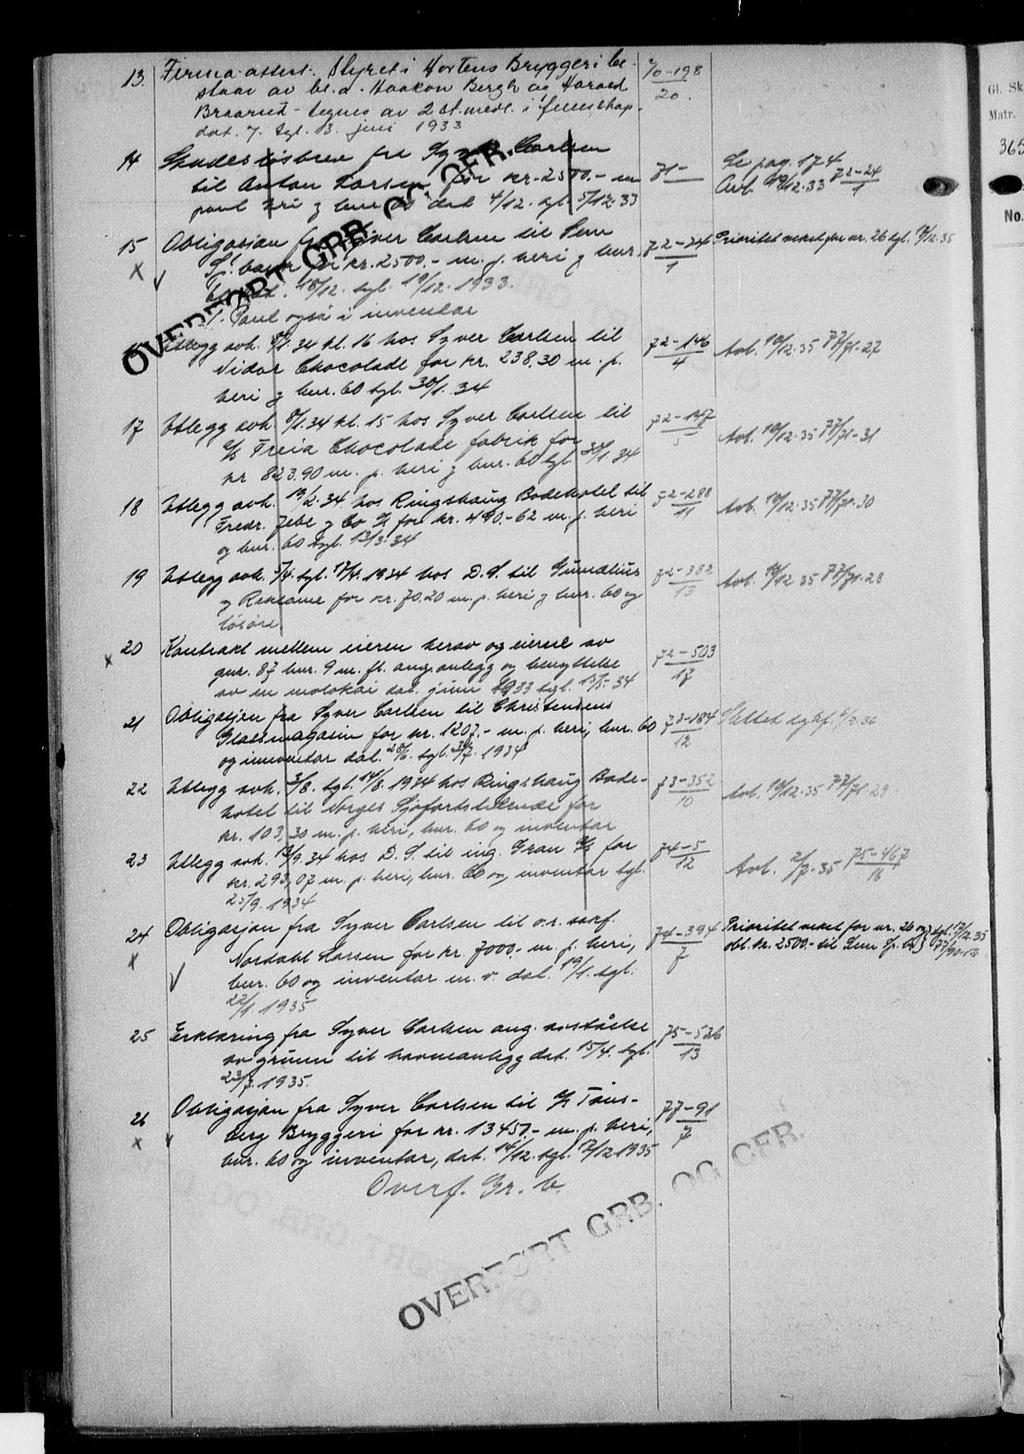 13. Firma-attest: Styret i Hortens Bryggeri be- 70-198
staar av bl.a. Haakon Bergh og Harald 20.
Braarud - tegnes av 2 st.medl. i fellesskap.
dat. 7. tgl. 13. juni 1933
14 Skadesløsbrev fra Syver Carlsen 71- Se pag. 174
til Anton Larsen for kr. 2500.- m Avl. 19/12.33 72-24/1
pant heri g bnr 60 dat 4/12. tgl. 5/12.33
15 Obligasjon fra Syver Carlsen til Sem 72-24 Prioritet veket for nr. 26 tgl. 17/12.35
Sp.bank for kr. 2500.- m. p. heri g bnr. 1
60 dat. 18/12. tgl. 19/12.1933.
Pant også i inventar
OVERFØRT GRB. OG OFR.
Utlegg avh. 34 kl. 16 hos Syver Carlsen til 72-146 Avl. 19/12.35 77/71-27
Nidar Chocolade for kr. 238,30 m. p. 4
heri g bnr. 60 tgl. 30/1.34
17 Utlegg avh. 34 kl. 15 hos Syver Carlsen til 72-147 Avl. 19/12.35 77/71-31
A/S Freia Chocolade fabrik for 5
kr 823.90 m. p. heri g bnr. 60 tgl 30/1 34
18 Utlegg avh. 19/2.34 hos Ringshaug Badehotel til 72-288 Avl. 19/12.35 77/71-30
Fredr. g Co A/S for kr. 490.-62 m. p. heri 11
og bnr. 60 tgl. 13/3.34
19 Utlegg avh. 5/4. tgl. 17/4.1934 hos D.S. til Gumælius 72-382 Avl. 19/12 35 77/71-28
g Reklame for kr. 70.20 m. p. heri g bnr. 60 og 13
løsøre.
20 Kontrakt mellem eieren herav og eierne av 72-503
x gnr. 87 bnr. 9 m. fl. ang. anlegg og benyttelse 17
av en molokai dat. juni 1933 tgl. 34
21 Obligasjon fra Syver Carlsen til Christensens 73-184 Slettet
Glassmagasin for kr. 1207.- m. p. heri, bnr. 60 12
og inventar dat. tgl. 1934
22 Utlegg avh. 3/8. tgl. 14/8.1934 hos Ringshaug Bade- 73-352 Avl. 19/12.35 77/71-29
hotel til Norges Sjøfartstidende for 10
kr. 103,30 m. p. heri, bnr. 60 og inventar
23 Utlegg avh. 13/9.34 hos D.S. til ing. Gran A/S for 74-5 Avl. 2/7.35 75-467
kr. 293,07 m. p. heri, bnr. 60 og inventar tgl. 12 16
25/9.1934
24 Obligasjon fra Syver Carlsen til o.r. sakf. 74-394 Prioritet veket for nr. 26 og tgl. 17/12.35
x Nordahl Larsen for kr 7000.- m. p. heri, 7 obl. kr. 2500.- til Sem Sp.
bnr. 60 og inventar m. v. dat. 19/1. tgl.
22/1 1935
25 Erklæring fra Syver Carlsen ang. avståelse 75-526
av grunn til havneanlegg dat. 15/4. tgl. 13
23/7.1935.
26 Obligasjon fra Syver Carlsen til A/S Tøns- 77-91
x berg Bryggeri for kr. 13457.- m. p. heri, 7
bnr. 60 og inventar, dat. 14/12. tgl. 17/12 1935
Overf. Gr. b.
OVERFØRT GRB. OG OFR.
Gl. Sk
Matr.
365
No.